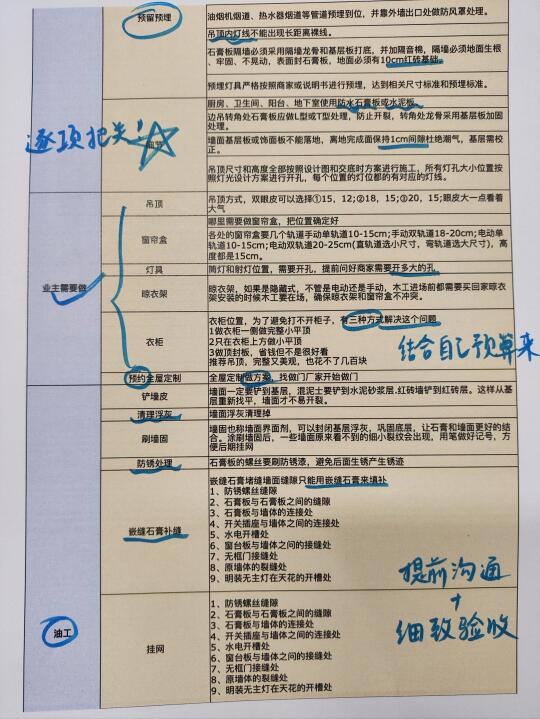 预留预埋
油烟机烟道、热水器烟道等管道预埋到位，并靠外墙出口处做防风罩处理。
吊顶内灯线不能出现长距离裸线。
石膏板隔墙必须采用隔墙龙骨和基层板打底，并加隔音棉，隔墙必须地面生根
、牢固、不晃动，表面封石膏板，地面必须有10cm红砖基础。
预埋灯具严格按照商家或说明书进行预埋，达到相关尺寸标准和预埋标准。
逐项把关！
细节
厨房、卫生间、阳台、地下室使用防水石膏板或水泥板。
边吊转角处石膏板应做L型或T型处理，防止开裂，转角处龙骨采用基层板加固
处理。
墙面基层板或饰面板不能落地，离地完成面保持1cm间隙杜绝潮气，基层需校
正。
吊顶尺寸和高度全部按照设计图和交底时方案进行施工，所有灯孔大小位置按
照灯光设计方案进行开孔，每个位置的灯位都的有对应的灯线。
业主需要做
吊顶
吊顶方式，双眼皮可以选择①15，12；②18，15；③20，15；眼皮大一点看着
大气
窗帘盒
哪里需要做窗帘盒，把位置确定好
各处的窗帘盒要几个轨道手动单轨道10-15cm；手动双轨道18-20cm；电动单
轨道10-15cm；电动双轨道20-25cm(直轨道选小尺寸，弯轨道选大尺寸)，高
度都是15cm。
灯具
筒灯和射灯位置，需要开孔，提前问好商家需要开多大的孔
晾衣架
晾衣架，如果是隐藏式，不管是电动还是手动，木工进场前都需要买回家晾衣
架安装的时候木工要在场，确保晾衣架和窗帘盒不冲突。
衣柜
衣柜位置，为了避免打不开柜子，有三种方式解决这个问题
1做衣柜一侧做完整小平顶
2只在衣柜上方做小平顶
3做顶封板，省钱但不是很好看
推荐吊顶，完整又美观，也花不了几百块
结合自己预算来
预约全屋定制
全屋定制做方案，找做门厂家开始做门
油工
铲墙皮
墙面一定要铲到基层，混泥土要铲到水泥砂浆层.红砖墙铲到红砖层。这样从基
层重新找平，墙面才不易开裂。
清理浮灰
墙面浮灰清理掉
刷墙固
墙固也称墙面界面剂，可以封闭基层浮灰，巩固底层，让石膏和墙面更好的结
合。涂刷墙固后，一些墙面原来看不到的细小裂纹会出现，用笔做好记号，方
便后期挂网
防锈处理
石膏板的螺丝要刷防锈漆，避免后面生锈产生锈迹
嵌缝石膏补缝
嵌缝石膏堵缝墙面缝隙只能用嵌缝石膏来填补
1、防锈螺丝缝隙
2、石膏板与石膏板之间的缝隙
3、石膏板与墙体的连接处
4、开关插座与墙体之间的连接处
5、水电开槽处
6、窗台板与墙体之间的接缝处
7、无框门接缝处
8、原墙体的裂缝处
9、明装无主灯在天花的开槽处
提前沟通
+
细致验收
挂网
1、防锈螺丝缝隙
2、石膏板与石膏板之间的缝隙
3、石膏板与墙体的连接处
4、开关插座与墙体之间的连接处
5、水电开槽处
6、窗台板与墙体之间的接缝处
7、无框门接缝处
8、原墙体的裂缝处
9、明装无主灯在天花的开槽处